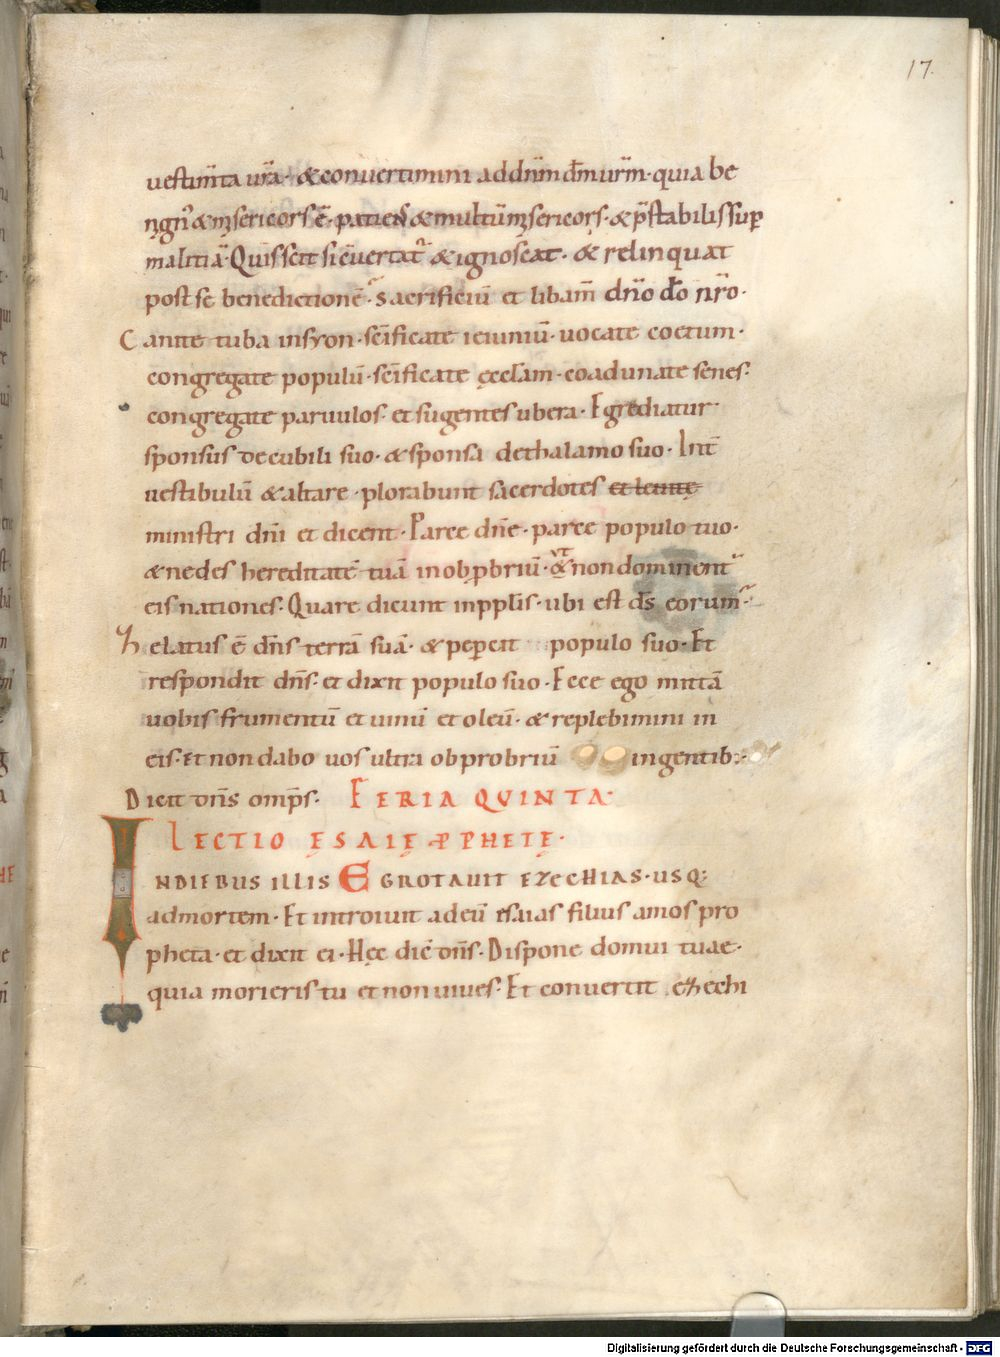 17.
vestim̄ta vr̄a· &convertimini addn̄m dm̄ ur̄m· quia be
nign' &misericors ē· patiens &multū misericors· &p̄stabilis sup
malitiā· Quis scit si c̄uertat' &ignoscat· & relinquat
post se benedictionē· sacrificiū et libam̄ dn̄o dō nr̄o·
Canite tuba insyon· sc̄ificate ieiuniū· uocate coetum·
congregate populū· sc̄ificate ęccl̄am· coadunate senes·
congregate paruulos· et sugentes ubera· Egrediatur
sponsus decubili suo· &sponsa dethalamo suo· Int̄
uestibulū &altare· plorabunt sacerdotes et leuitę
ministri dn̄i et dicent· Parce dn̄e· parce populo tuo·
&nedes hereditatē tuā inobprobriū· & ut non dominent'
eis nationes· Quare dicunt inppl̄is· ubi est ds̄ eorum·
Zelatus ē dn̄s terrā suā· &pepercit populo suo· Et
respondit dn̄s· et dixit populo suo· Ecce ego mittā
uobis frumentū et uinū et oleū· &replebimini in
eis· Et non dabo uos ultra obprobriū ingentib:·
Dicit dn̄s omp̄s· FERIA QUINTA·
LECTIO ESAIĘ PPHETĘ·
INDIEBUS ILLIS EGROTAUIT EZECHIAS· USQ;
admortem· Et introiuit adeū esaias filius amos pro
pheta· et dixit ei· Hęc dic̄ dn̄s· Dispone domui tuae·
quia morieris tu et non uiues· Et conuertit ezechi
Digitalisierung gefördert durch die Deutsche Forschungsgemeinschaft - DFG